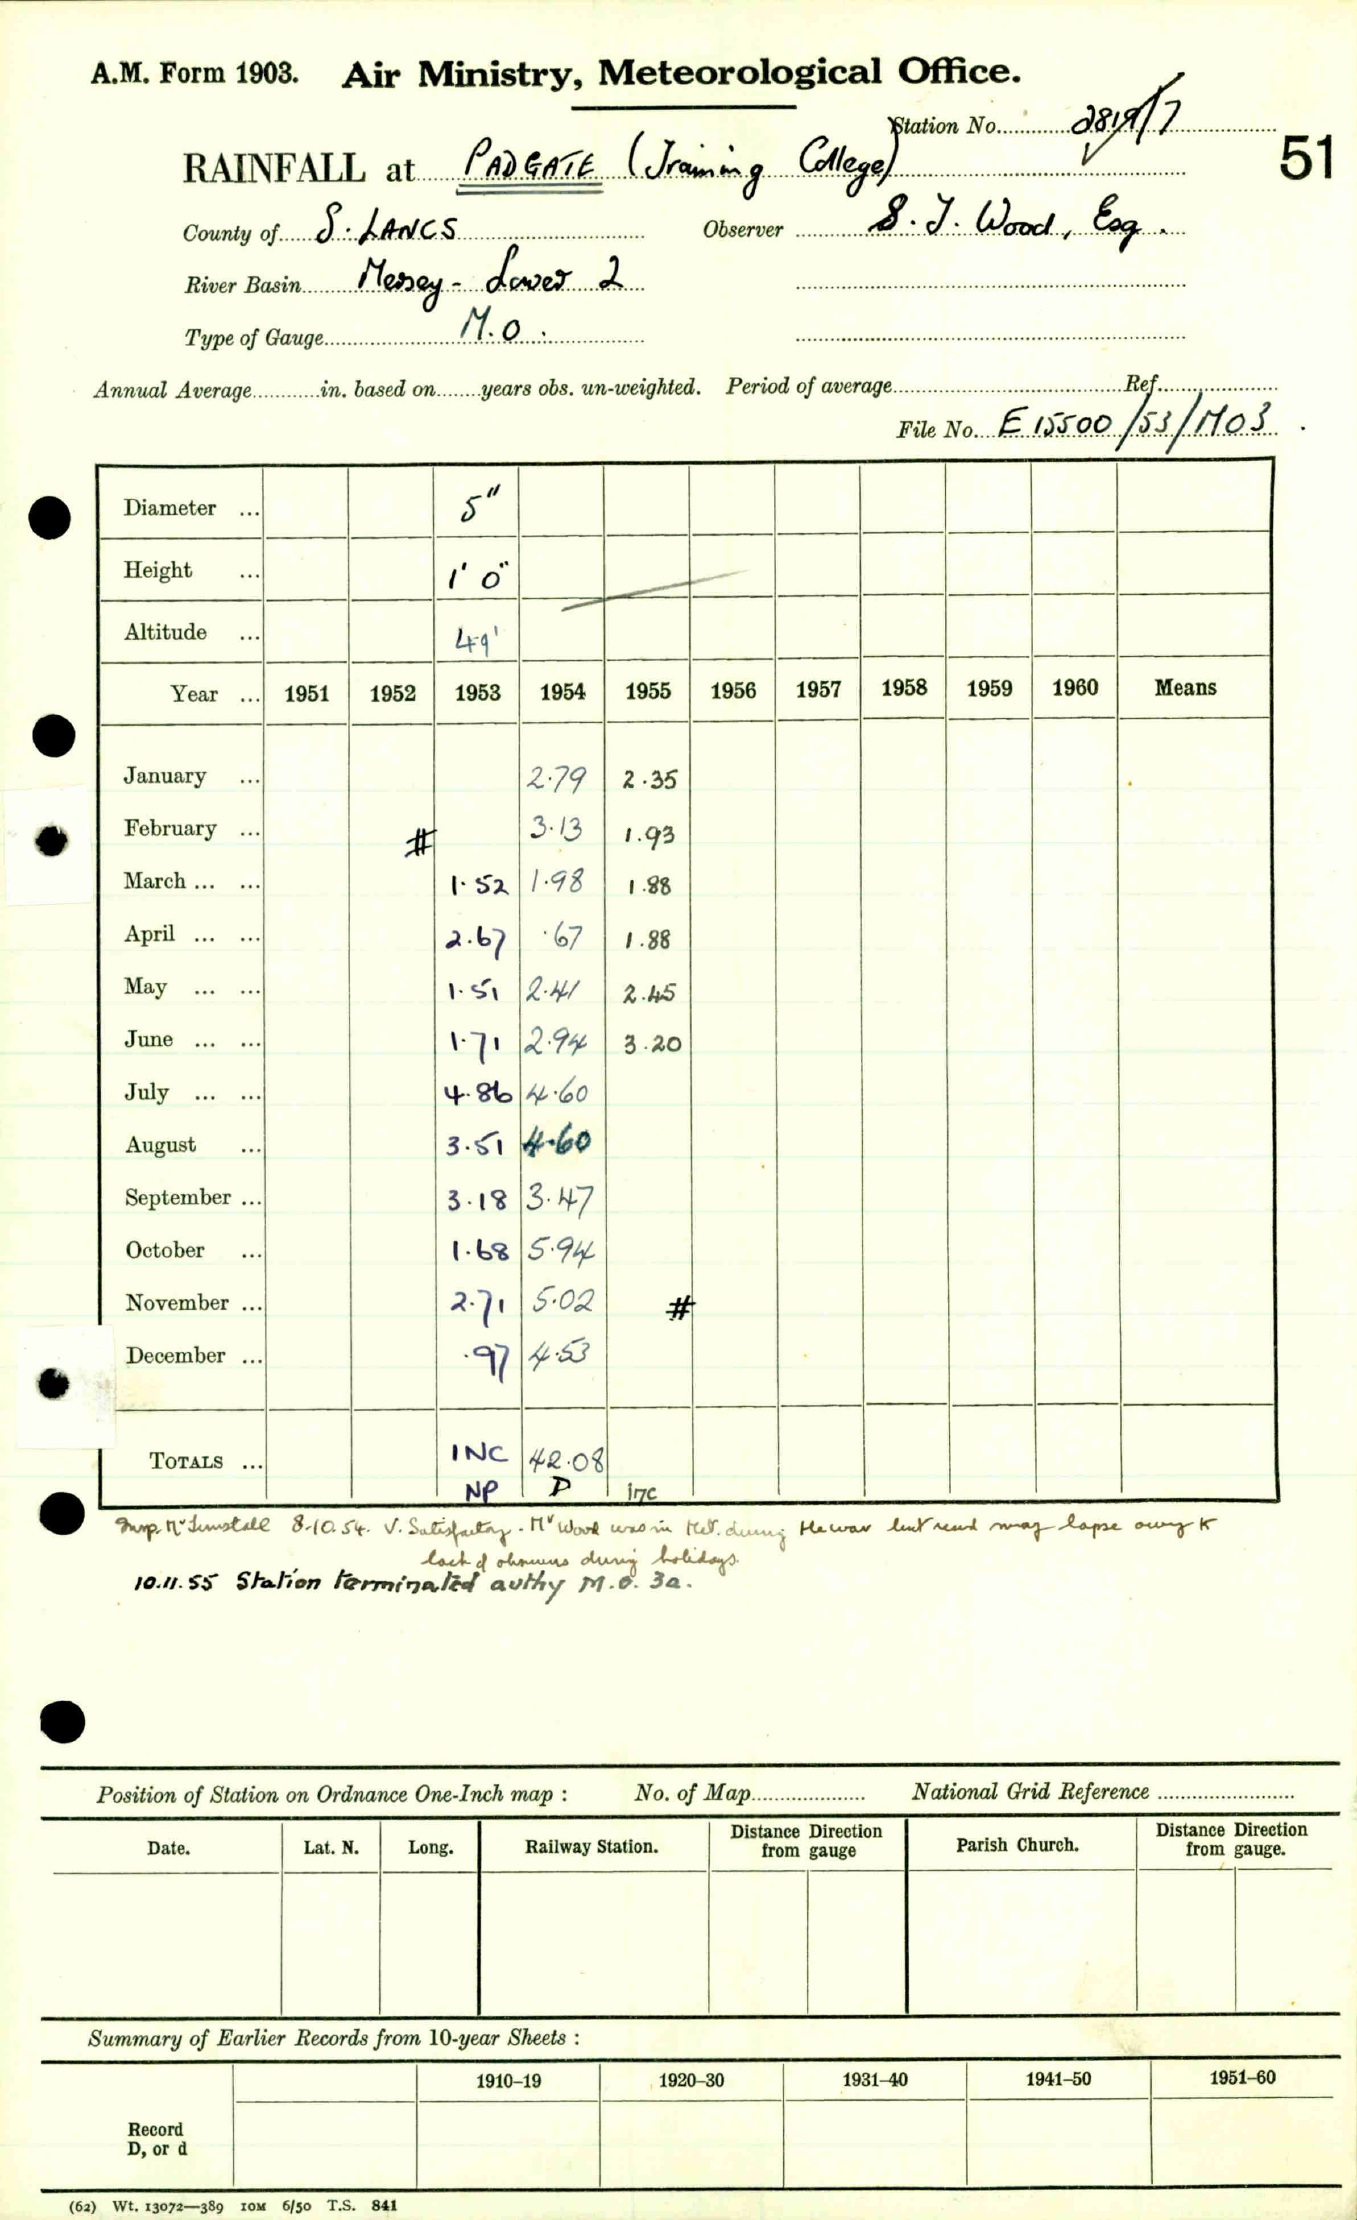 A.M. Form 1903. Air Ministry, Meteorological Office.
Station No. 2819/7
51
RAINFALL at PADGATE (Training College)
County of S. LANCS Observer S. J. Wood, Esq.
River Basin Mersey - Lower 2
Type of Gauge M.O.
Annual Average in. based on years obs. un-weighted. Period of average Ref.
File No. E 15500/53/MO3
Diameter ... 5"
Height ... 1' 0"
Altitude ... 49'
Year ... 1951 1952 1953 1954 1955 1956 1957 1958 1959 1960 Means
January ... 2.79 2.35
February ... # 3.13 1.93
March ... ... 1.52 1.98 1.88
April ... ... 2.67 .67 1.88
May ... ... 1.51 2.41 2.45
June ... ... 1.71 2.94 3.20
July ... ... 4.86 4.60
August ... 3.51 4.60
September ... 3.18 3.47
October ... 1.68 5.94
November ... 2.71 5.02 #
December ... .97 4.53
TOTALS ... INC 42.08
NP P inc
Insp. Mr Tunstall 8.10.54. V. Satisfactory. Mr Wood was in Met. during the war but record may lapse owing to
lack of observers during holidays.
10.11.55 Station terminated authy M.O. 3a.
Position of Station on Ordnance One-Inch map : No. of Map National Grid Reference
Date. Lat. N. Long. Railway Station. Distance from gauge Direction Parish Church. Distance from gauge. Direction
Summary of Earlier Records from 10-year Sheets :
1910–19 1920–30 1931–40 1941–50 1951–60
Record
D, or d
(62) Wt. 13072—389 10M 6/50 T.S. 841